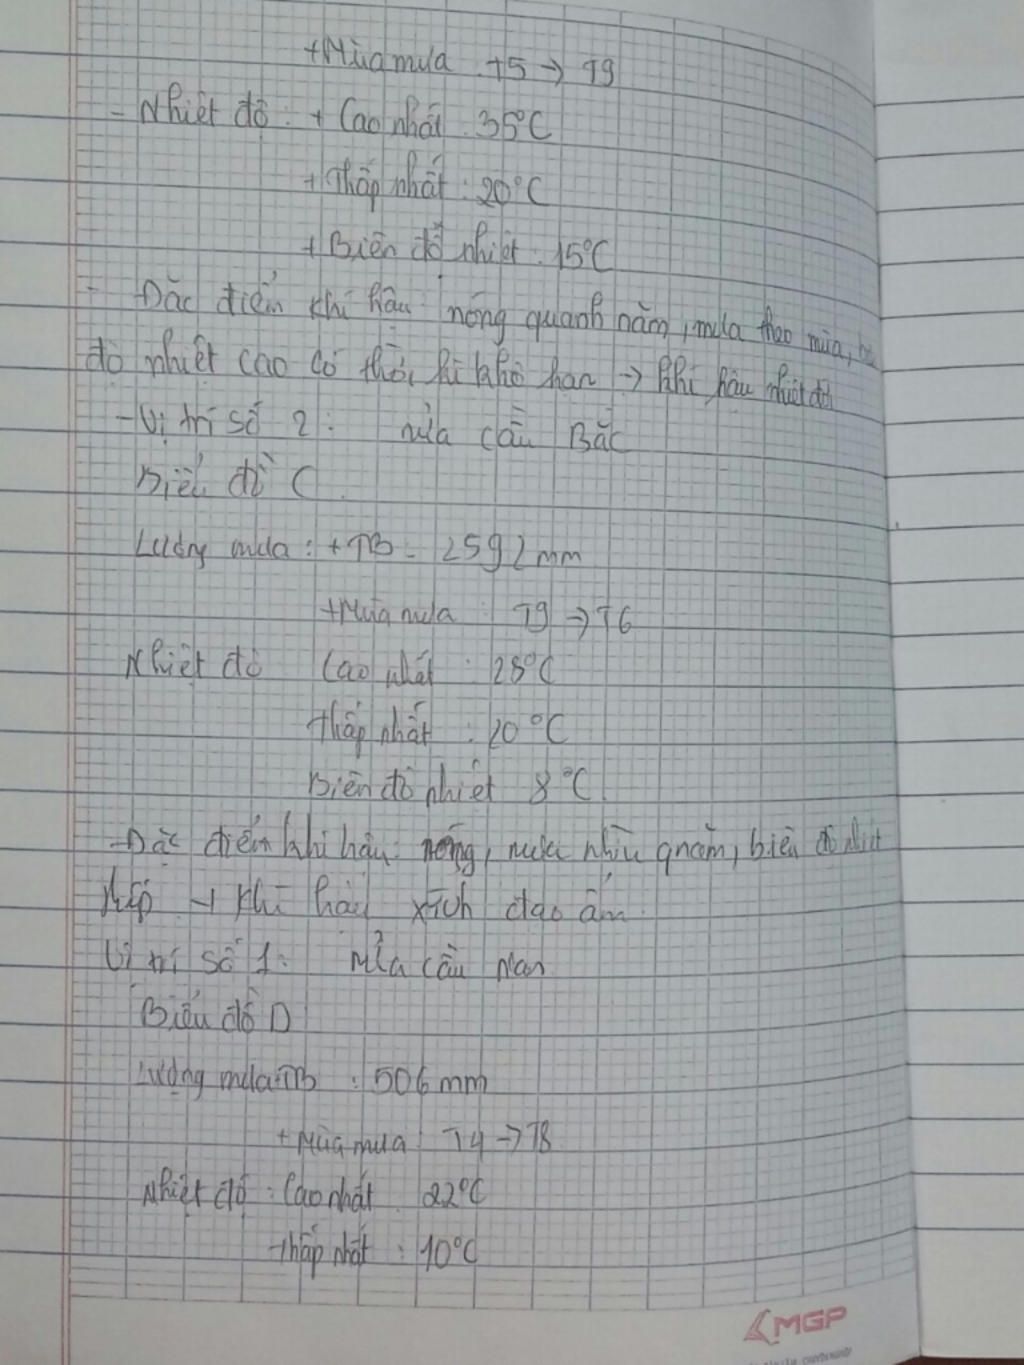 + Mùa mưa T5 → T9
- Nhiệt độ: + Cao nhất: 35°C
+ Thấp nhất: 20°C
+ Biên độ nhiệt: 15°C
- Đặc điểm khí hậu: nóng quanh năm, mưa theo mùa,
độ nhiệt cao có thời kì khô hạn → Khí hậu nhiệt đới
- Vị trí số 2: nửa cầu Bắc
Biểu đồ C
Lượng mưa: + TB = 2592mm
+ Mùa mưa: T9 → T6
Nhiệt độ Cao nhất: 28°C
thấp nhất: 20°C
Biên độ nhiệt 8°C
- Đặc điểm khí hậu: nóng, mưa nhiều qnăm, biên độ nhiệt
thấp → Khí hậu xích đạo ẩm
Vị trí số 1: Nửa cầu Nam
Biểu đồ D
Lượng mưa TB: 506mm
+ Mùa mưa: T4 → T8
Nhiệt độ: Cao nhất 22°C
thấp nhất: 10°C
MGP